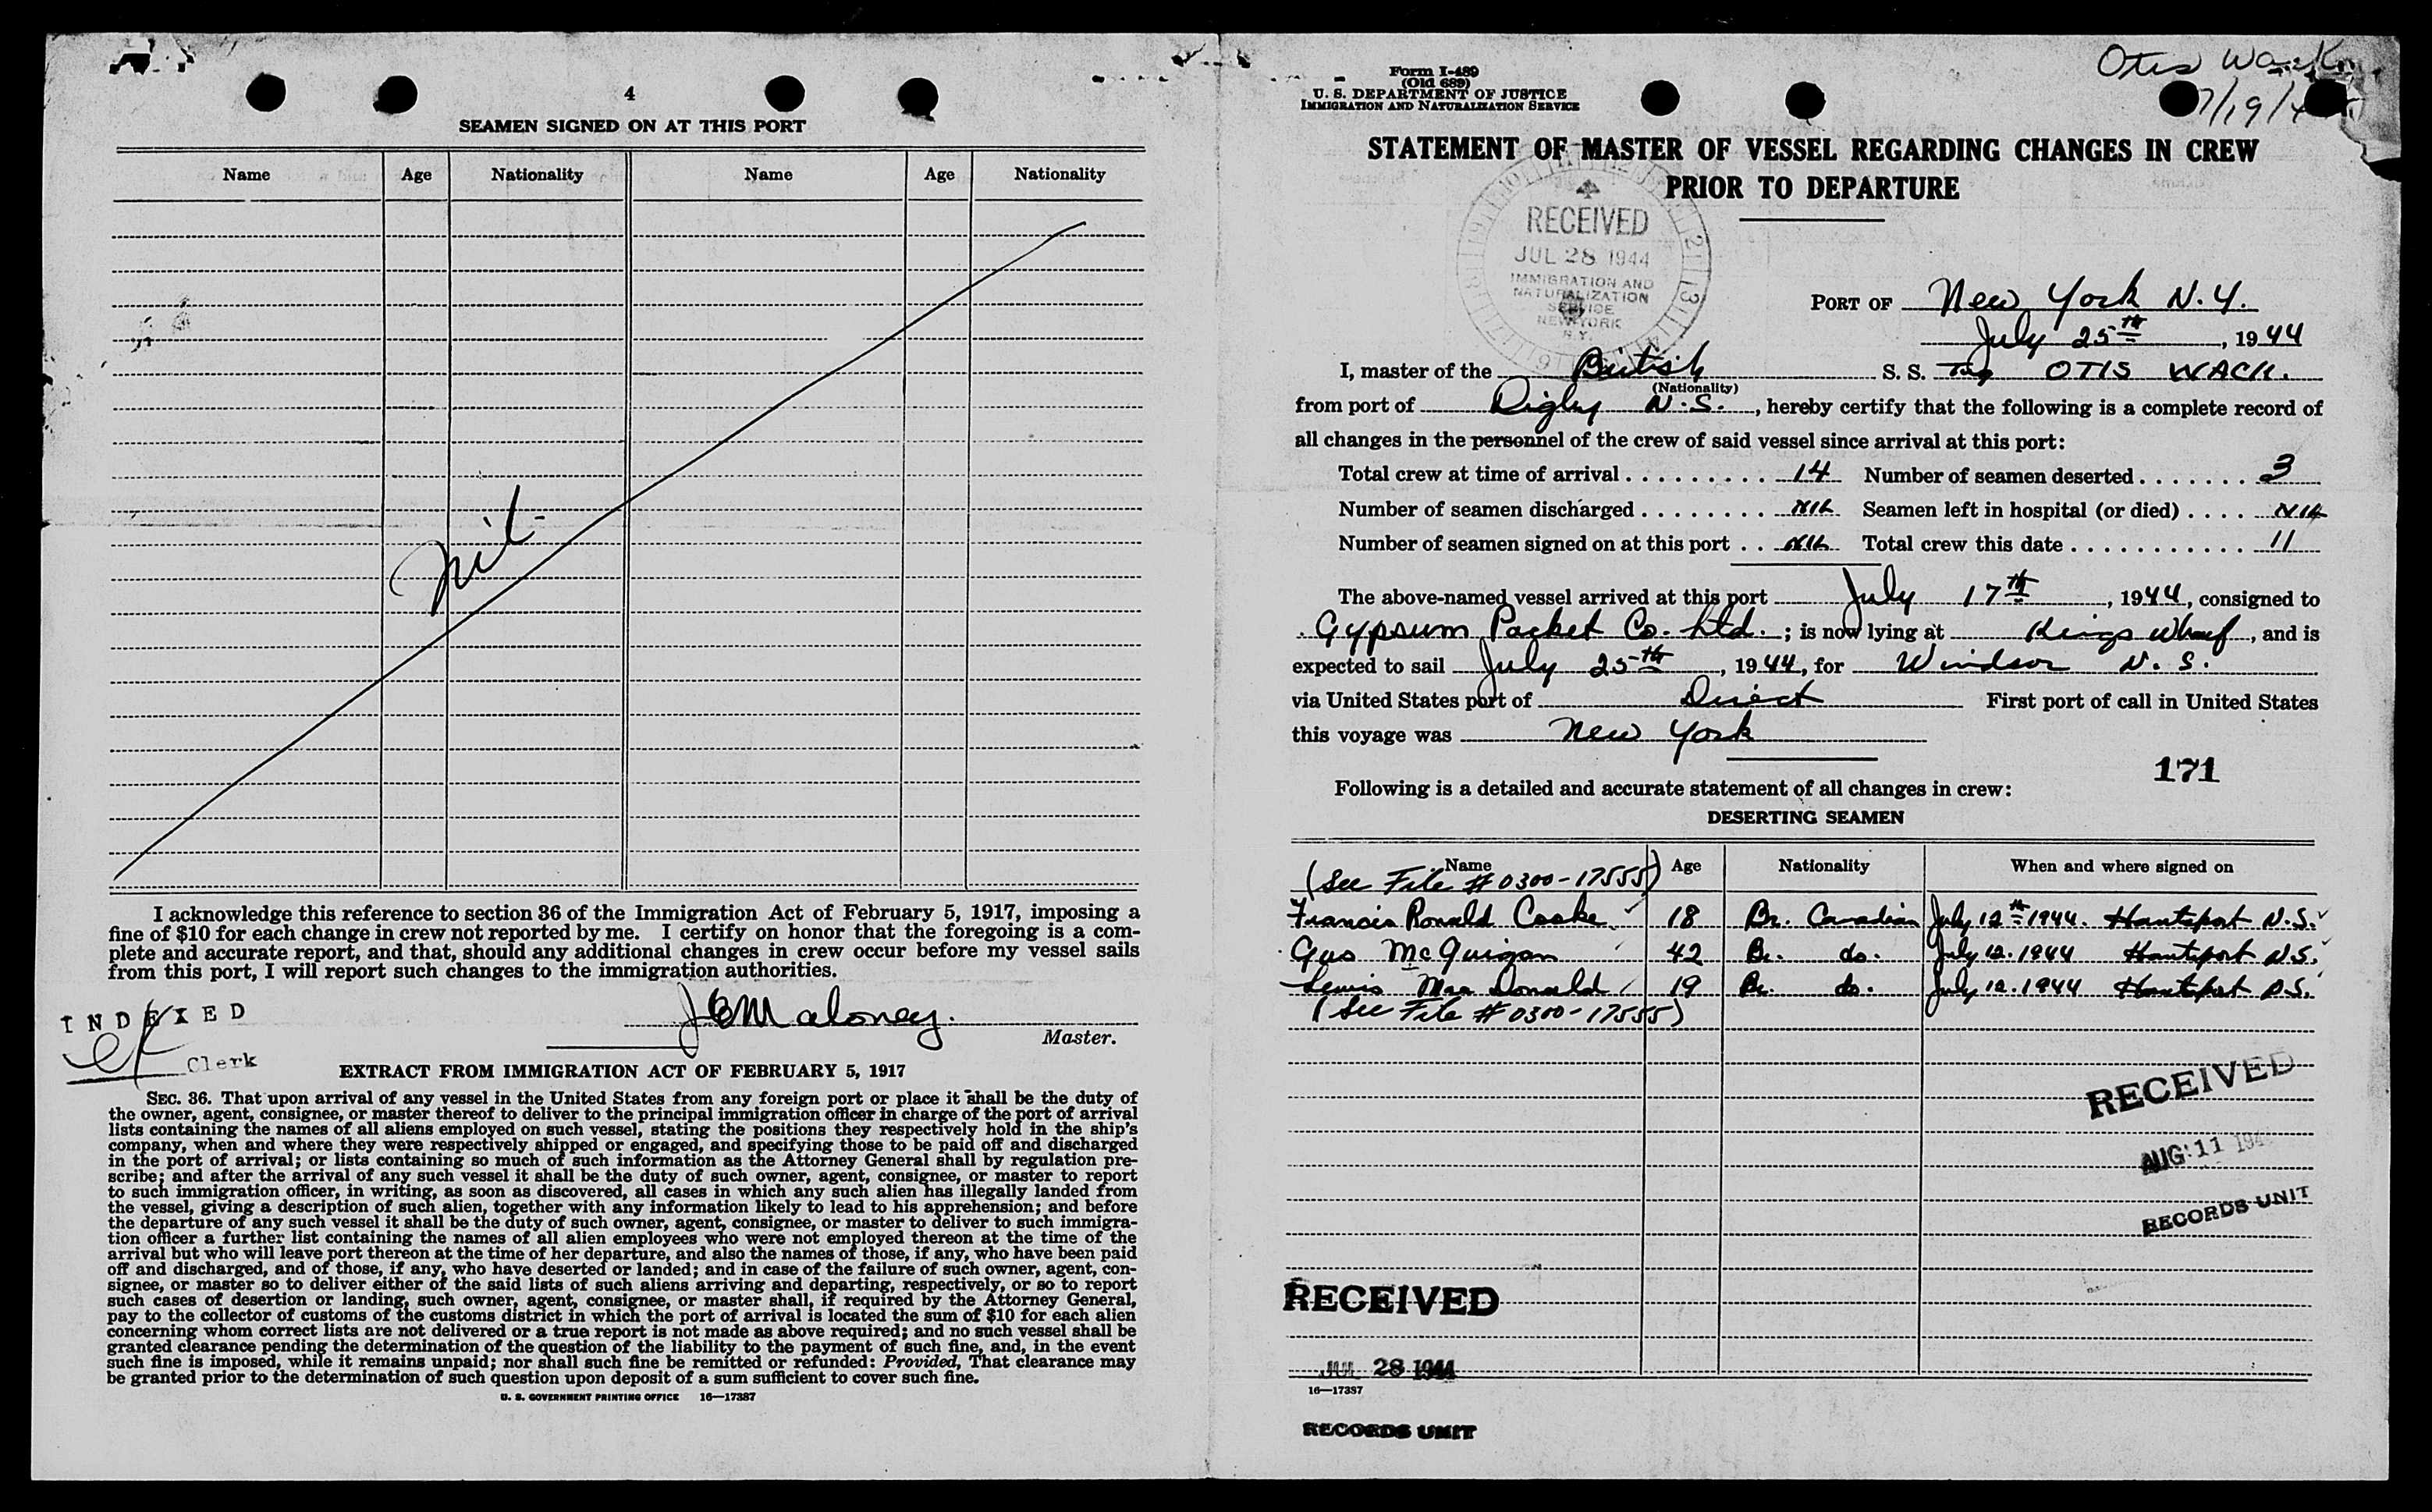 4
SEAMEN SIGNED ON AT THIS PORT
Name Age Nationality Name Age Nationality
nil
I acknowledge this reference to section 36 of the Immigration Act of February 5, 1917, imposing a
fine of $10 for each change in crew not reported by me. I certify on honor that the foregoing is a com-
plete and accurate report, and that, should any additional changes in crew occur before my vessel sails
from this port, I will report such changes to the immigration authorities.
INDEXED
Clerk
Maloney.
Master.
EXTRACT FROM IMMIGRATION ACT OF FEBRUARY 5, 1917
SEC. 36. That upon arrival of any vessel in the United States from any foreign port or place it shall be the duty of
the owner, agent, consignee, or master thereof to deliver to the principal immigration officer in charge of the port of arrival
lists containing the names of all aliens employed on such vessel, stating the positions they respectively hold in the ship's
company, when and where they were respectively shipped or engaged, and specifying those to be paid off and discharged
in the port of arrival; or lists containing so much of such information as the Attorney General shall by regulation pre-
scribe; and after the arrival of any such vessel it shall be the duty of such owner, agent, consignee, or master to report
to such immigration officer, in writing, as soon as discovered, all cases in which any such alien has illegally landed from
the vessel, giving a description of such alien, together with any information likely to lead to his apprehension; and before
the departure of any such vessel it shall be the duty of such owner, agent, consignee, or master to deliver to such immigra-
tion officer a further list containing the names of all alien employees who were not employed thereon at the time of the
arrival but who will leave port thereon at the time of her departure, and also the names of those, if any, who have been paid
off and discharged, and of those, if any, who have deserted or landed; and in case of the failure of such owner, agent, con-
signee, or master so to deliver either of the said lists of such aliens arriving and departing, respectively, or so to report
such cases of desertion or landing, such owner, agent, consignee, or master shall, if required by the Attorney General,
pay to the collector of customs of the customs district in which the port of arrival is located the sum of $10 for each alien
concerning whom correct lists are not delivered or a true report is not made as above required; and no such vessel shall be
granted clearance pending the determination of the question of the liability to the payment of such fine, and, in the event
such fine is imposed, while it remains unpaid; nor shall such fine be remitted or refunded: Provided, That clearance may
be granted prior to the determination of such question upon deposit of a sum sufficient to cover such fine.
U. S. GOVERNMENT PRINTING OFFICE 16—17387
Form I-489
(Old 689)
U. S. DEPARTMENT OF JUSTICE
IMMIGRATION AND NATURALIZATION SERVICE
Otis Wack
7/19/4
STATEMENT OF MASTER OF VESSEL REGARDING CHANGES IN CREW
PRIOR TO DEPARTURE
RECEIVED
JUL 28 1944
IMMIGRATION AND
NATURALIZATION
SERVICE
NEW YORK
N.Y.
PORT OF New York N.Y.
July 25th, 1944
I, master of the British S. S. Tug OTIS WACK.
(Nationality)
from port of Digby N.S., hereby certify that the following is a complete record of
all changes in the personnel of the crew of said vessel since arrival at this port:
Total crew at time of arrival . . . . . . . . . 14 Number of seamen deserted . . . . . . . 3
Number of seamen discharged . . . . . . . . NIL Seamen left in hospital (or died) . . . . NIL
Number of seamen signed on at this port . . NIL Total crew this date . . . . . . . . . . . 11
The above-named vessel arrived at this port July 17th, 1944, consigned to
Gypsum Packet Co. Ltd.; is now lying at Kings Wharf, and is
expected to sail July 25th, 1944, for Windsor N.S.
via United States port of Direct First port of call in United States
this voyage was New York
171
Following is a detailed and accurate statement of all changes in crew:
DESERTING SEAMEN
Name Age Nationality When and where signed on
(See File # 0300-17555)
Francis Ronald Cooke 18 Br. Canadian July 12th 1944. Hantsport N.S.
Gus McGuigan 42 Br. do. July 12. 1944 Hantsport N.S.
Lewis Mac Donald 19 Br. do. July 12. 1944 Hantsport N.S.
(See File # 0300-17555)
RECEIVED
AUG 11 194
RECORDS UNIT
RECEIVED
JUL 28 1944
16—17387
RECORDS UNIT